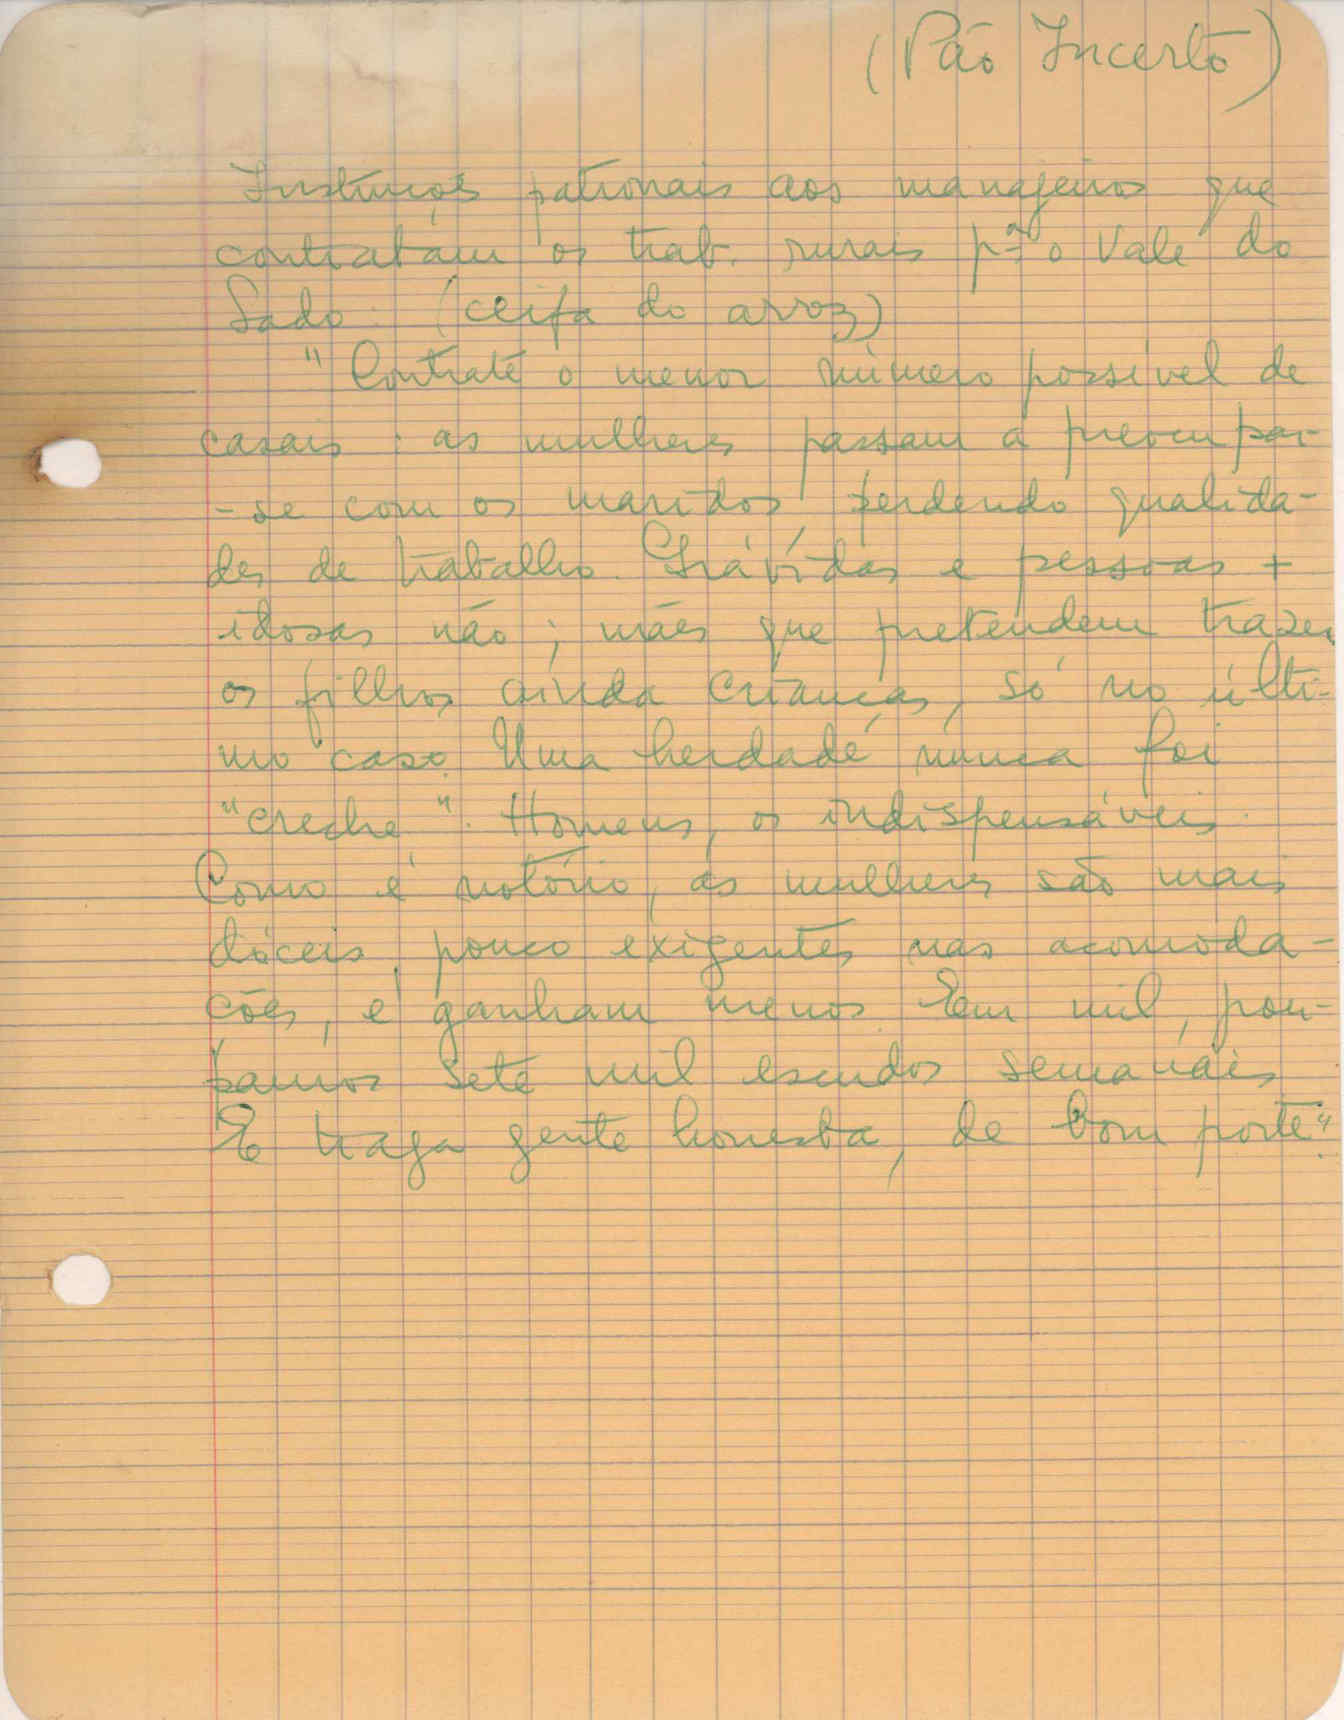 (Pão Incerto)
Instruções patronais aos manajeiros que
contratam os trab. rurais pª o Vale do
Sado: (ceifa do arroz)
"Contrate o menor número possível de
casais: as mulheres passam a preocupar-
-se com os maridos, perdendo qualida-
des de trabalho. Grávidas e pessoas +
idosas não; mães que pretendem trazer
os filhos ainda crianças, só no últi-
mo caso. Uma herdade nunca foi
"creche". Homens, os indispensáveis.
Como é notório, as mulheres são mais
dóceis, pouco exigentes nas acomoda-
ções, e ganham menos. Em mil, pou-
pamos sete mil escudos semanais.
E traga gente honesta, de bom porte".